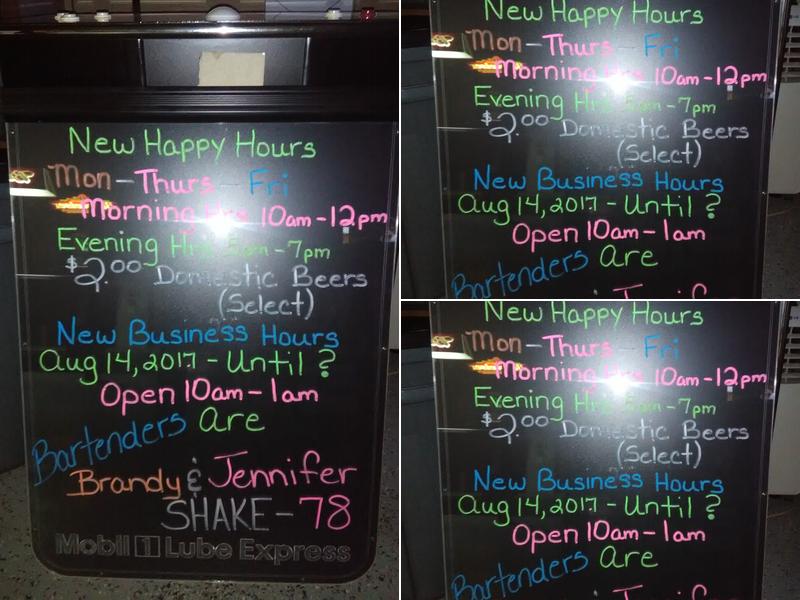 New Happy Hours
Mon - Thurs - Fri
Morning Hrs 10am - 12pm
Evening Hrs 5pm - 7pm
$2.00 Domestic Beers
(Select)
New Business Hours
Aug 14, 2017 - Until ?
Open 10am - 1am
Bartenders Are
Brandy & Jennifer
SHAKE - 78
Mobil 1 Lube Express
New Happy Hours
Mon - Thurs - Fri
Morning Hrs 10am - 12pm
Evening Hrs 5pm - 7pm
$2.00 Domestic Beers
(Select)
New Business Hours
Aug 14, 2017 - Until ?
Open 10am - 1am
Bartenders Are
New Happy Hours
Mon - Thurs - Fri
Morning Hrs 10am - 12pm
Evening Hrs 5pm - 7pm
$2.00 Domestic Beers
(Select)
New Business Hours
Aug 14, 2017 - Until ?
Open 10am - 1am
Bartenders Are